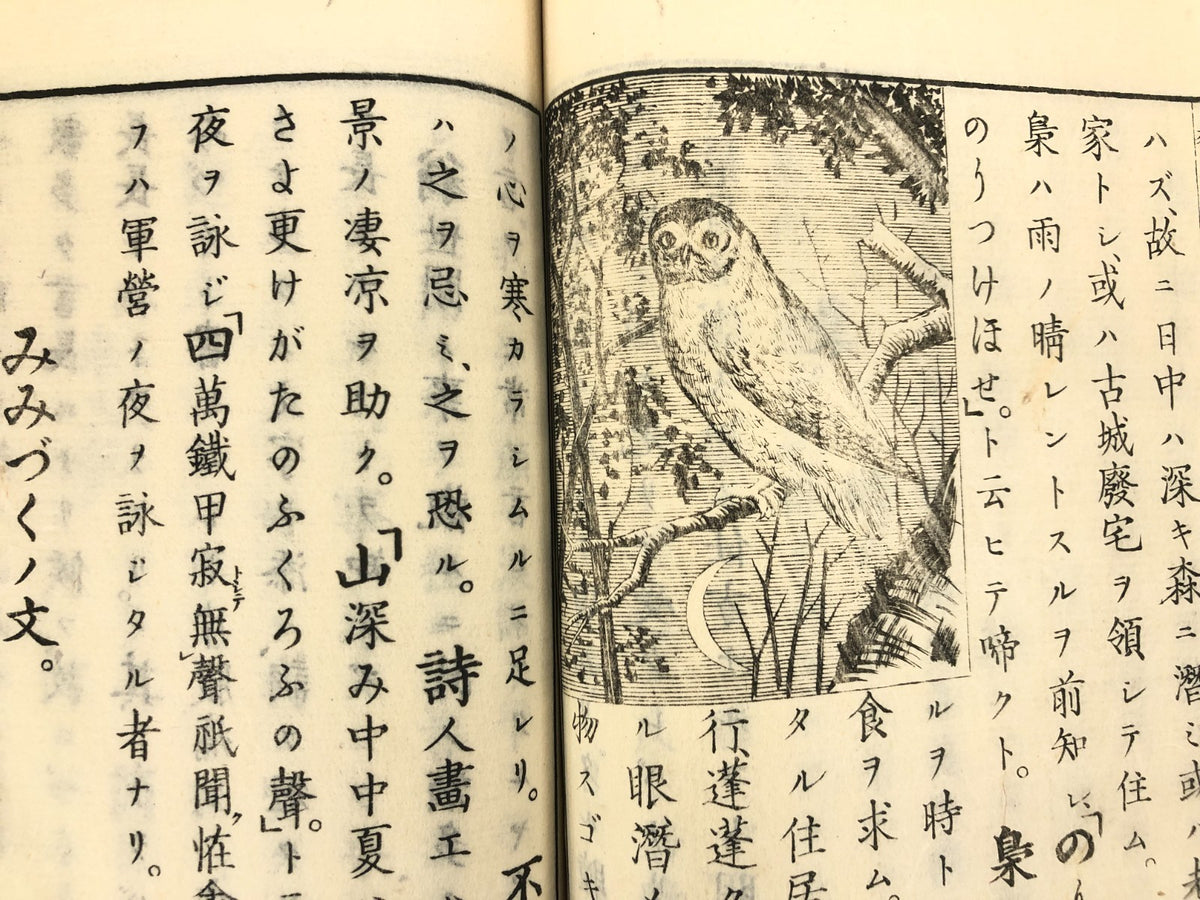 ハズ、故ニ日中ハ深キ森ニ潛ミ或ハ
家トシ、或ハ古城廢宅ヲ領シテ住ム。
梟ハ雨ノ晴レントスルヲ前知シ、「のり
のりつけほせ」。ト云ヒテ啼クト。梟
ルヲ時ト
食ヲ求ム。
タル住居
行、蓬蓬ク
ル眼潛メ
物スゴキ
ノ心ヲ寒カラシムルニ足レリ。不
ハ之ヲ忌ミ、之ヲ恐ル。詩人畫エ
景ノ凄凉ヲ助ク。「山深み中中夏
さよ更けがたのふくろふの聲」。ト
夜ヲ詠ジ「四萬鐵甲寂トシテ無聲祇聞ク恠
フハ軍營ノ夜ヲ詠ジタル者ナリ。
みみづくノ文。